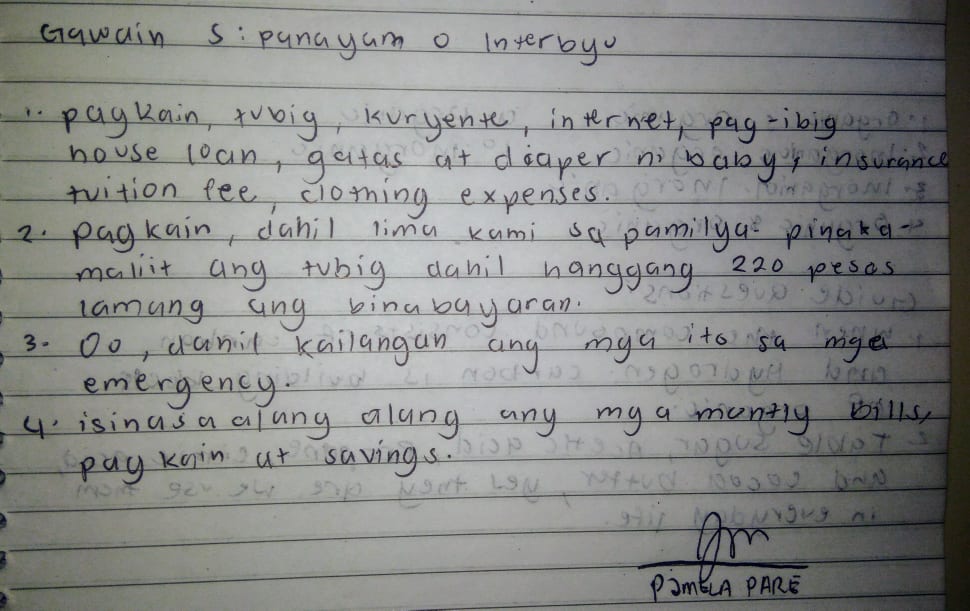 Gawain 5: panayam o Interbyu
1. pagkain, tubig, kuryente, internet, pag-ibig
house loan, gatas at diaper ni baby, insurance
tuition fee, clothing expenses.
2. pagkain, dahil lima kami sa pamilya. pinaka-
maliit ang tubig dahil hanggang 220 pesos
lamang ang binabayaran.
3. Oo, dahil kailangan ang mga ito sa mga
emergency.
4. isinasaalang alang ang mga montly bills,
pagkain at savings.
PAMELA PARE